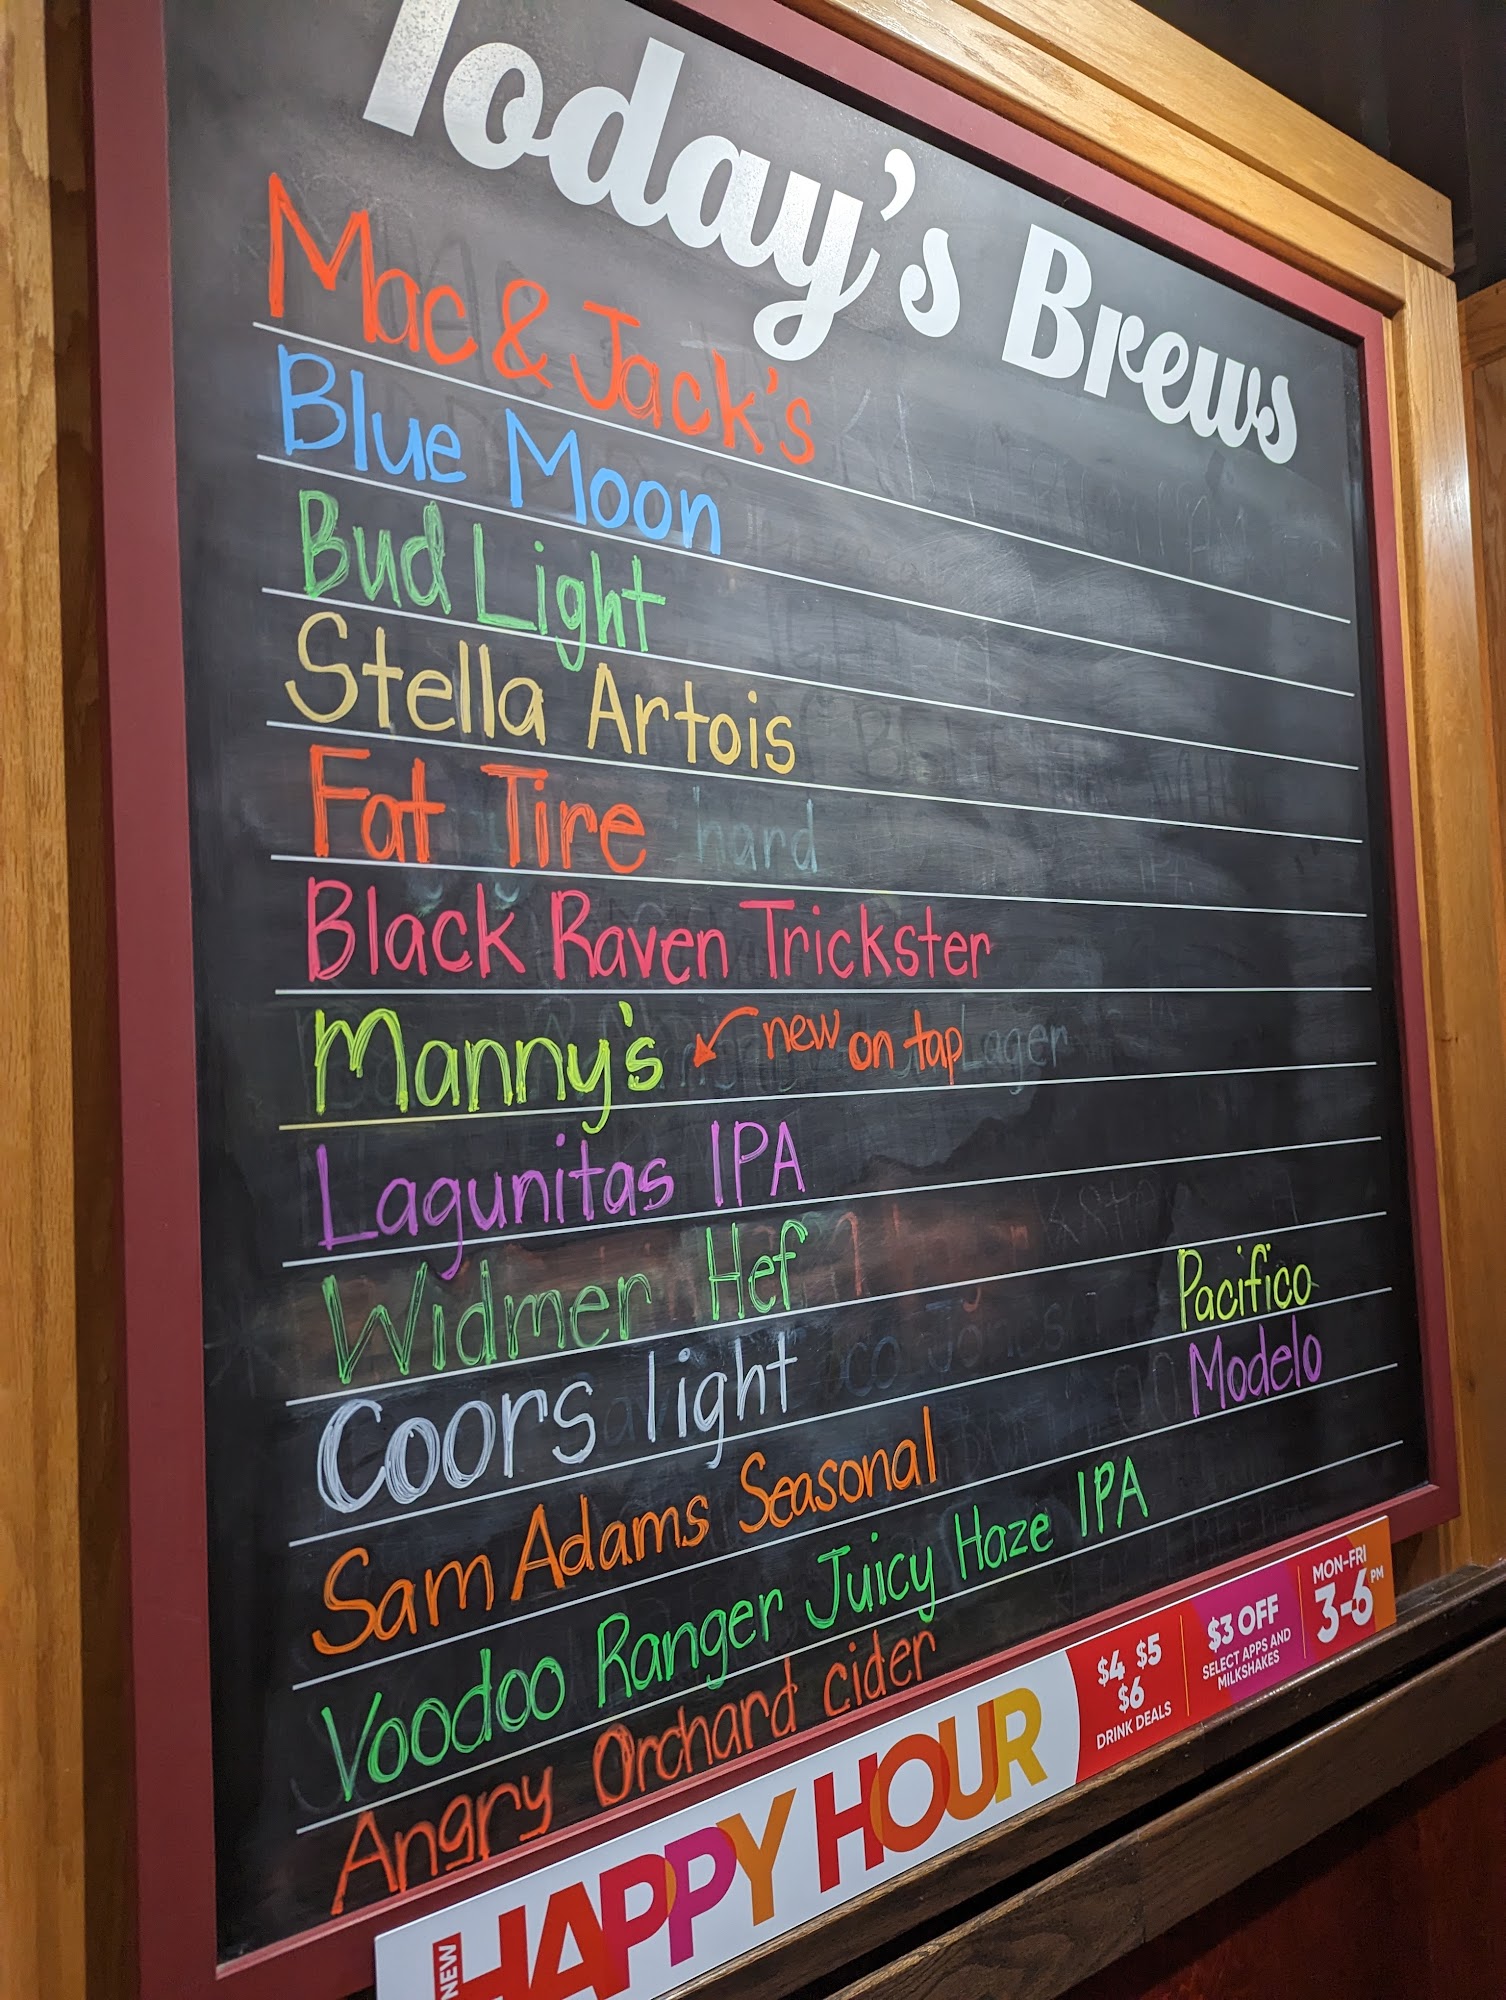 Today's Brews
Mac & Jack's
Blue Moon
Bud Light
Stella Artois
Fat Tire hard
Black Raven Trickster
Manny's new on tap Lager
Lagunitas IPA
Widmer Hef
Pacifico
Coors light
Modelo
Sam Adams Seasonal
Voodoo Ranger Juicy Haze IPA
Angry Orchard cider
NEW
HAPPY HOUR
$4 $5
$6
DRINK DEALS
$3 OFF
SELECT APPS AND
MILKSHAKES
MON-FRI
3-6PM